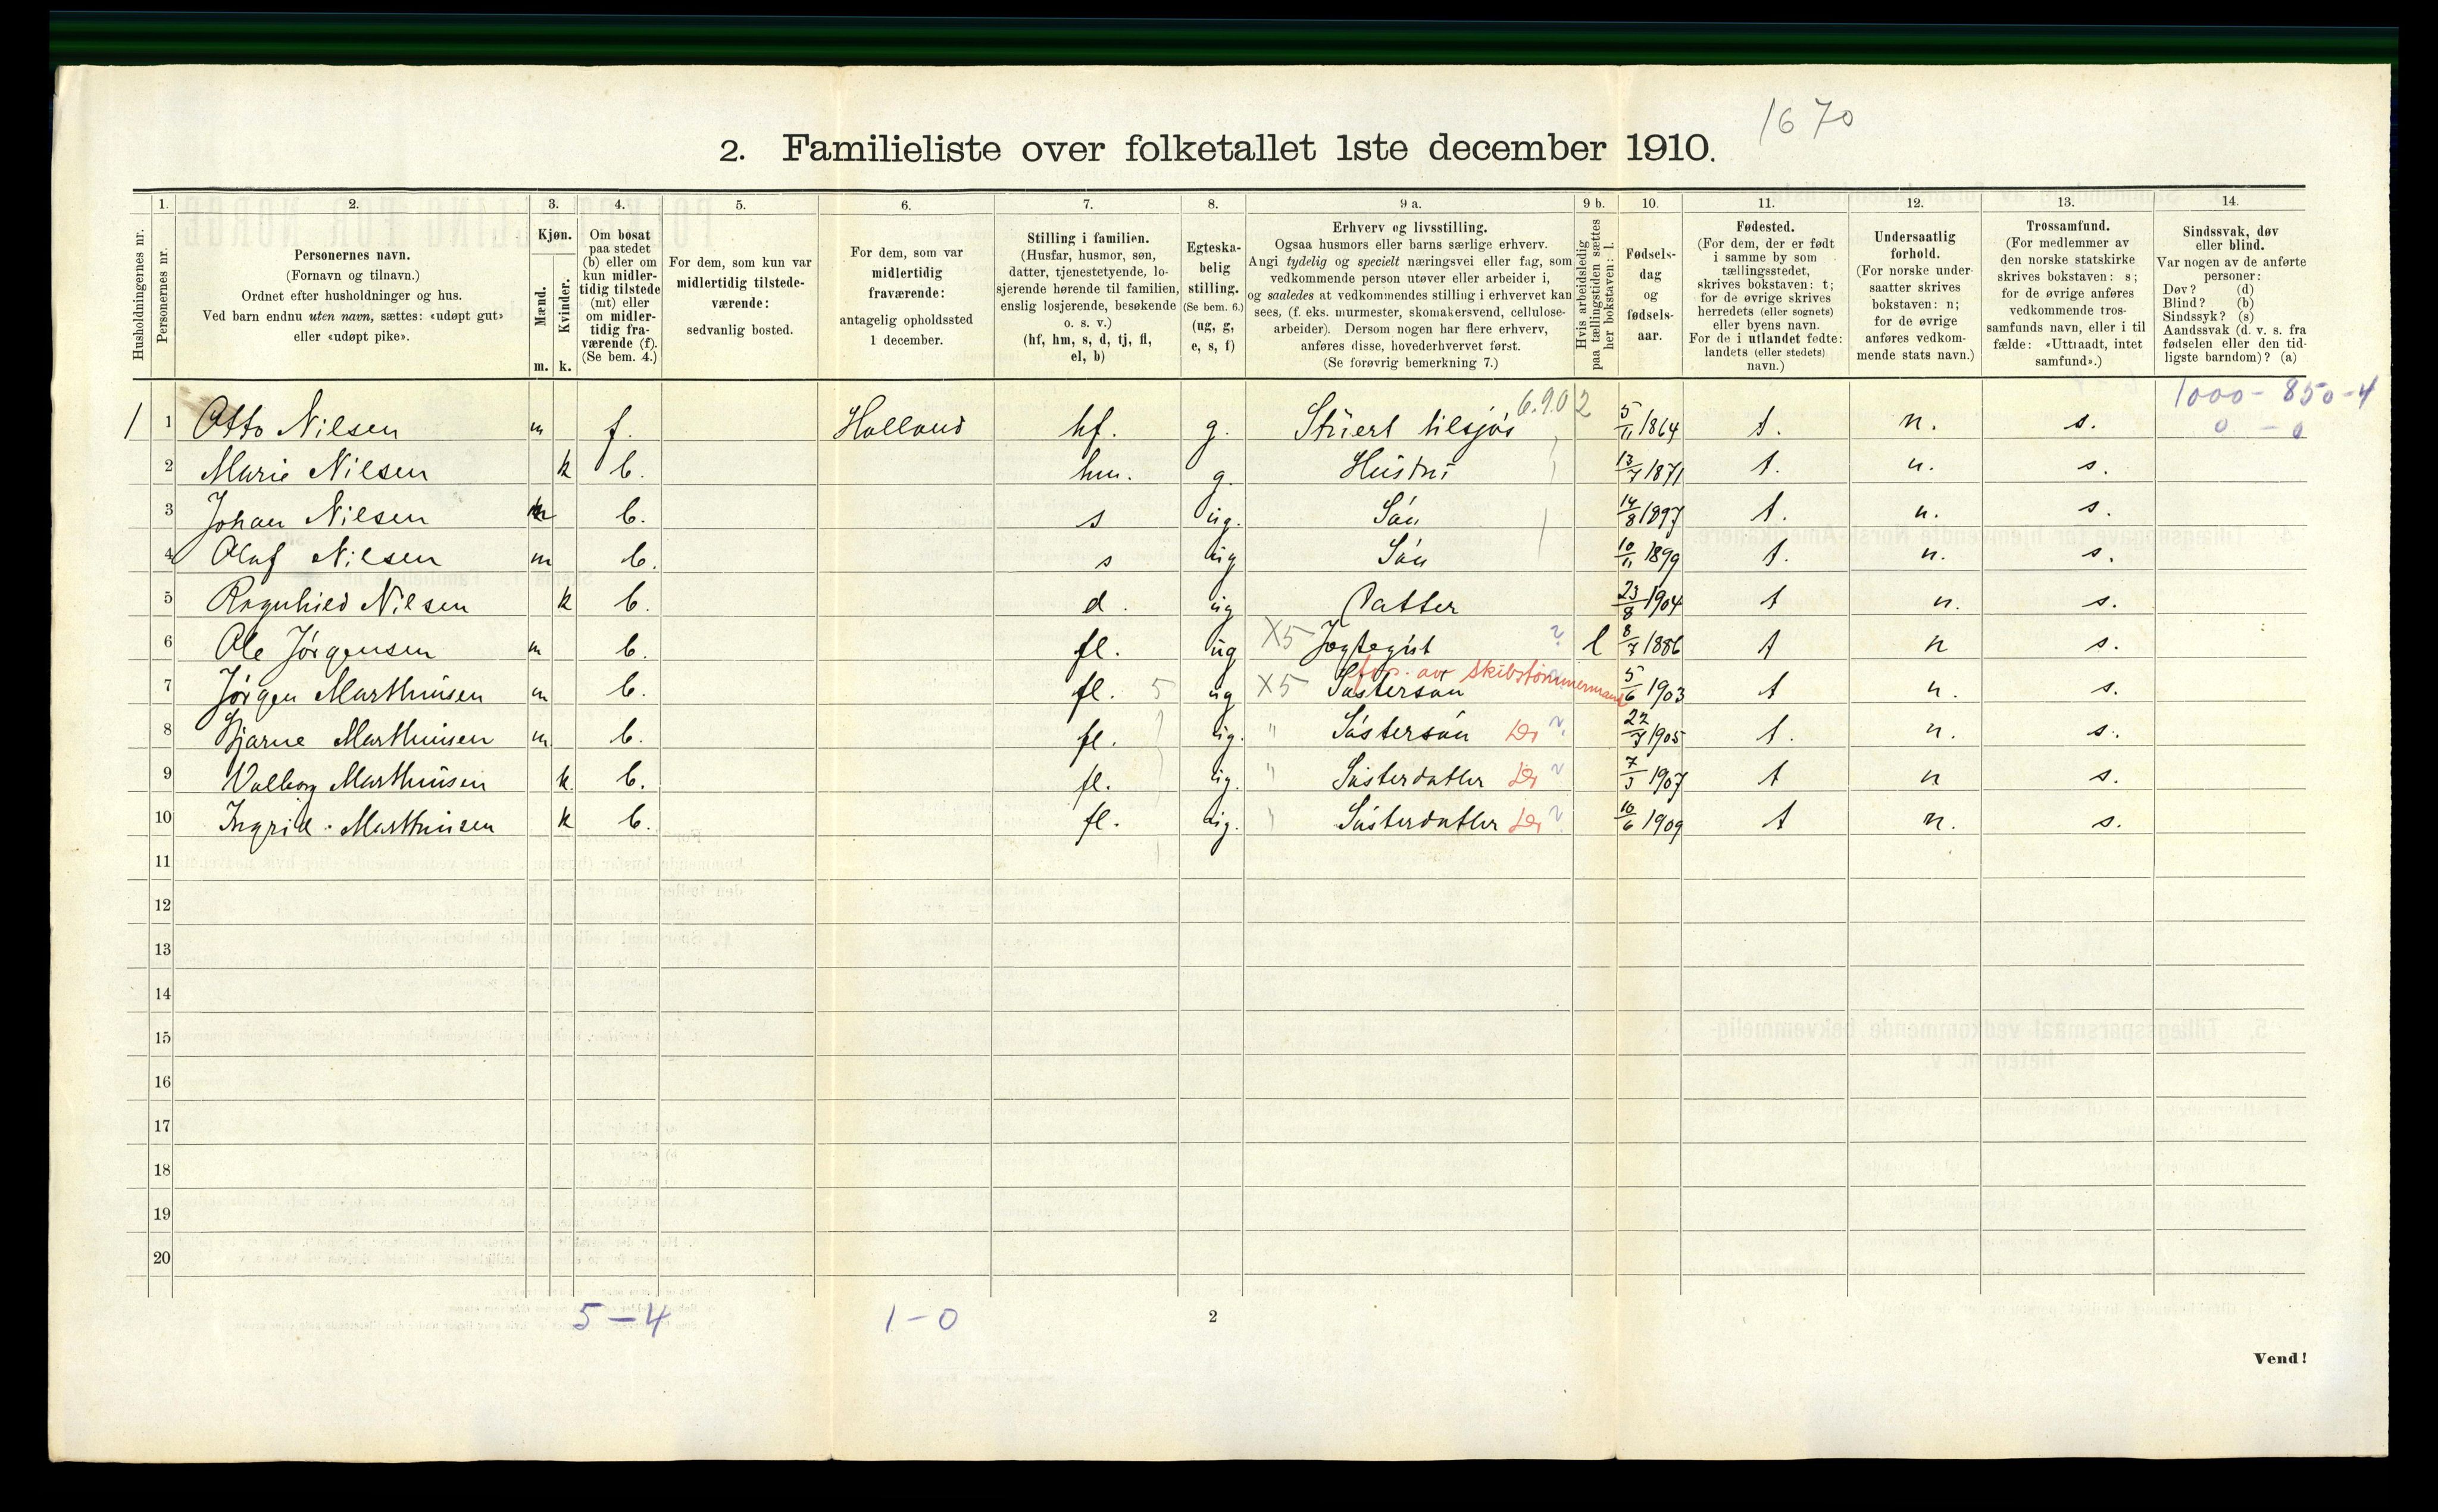 1670
2. Familieliste over folketallet 1ste december 1910.
Husholdningernes nr.
1.
Personernes nr.
2.
Personernes navn.
(Fornavn og tilnavn.)
Ordnet efter husholdninger og hus.
Ved barn endnu uten navn, sættes: «udøpt gut»
eller «udøpt pike».
3.
Kjøn.
Mænd.
Kvinder.
m. k.
4.
Om bosat
paa stedet
(b) eller om
kun midler-
tidig tilstede
(mt) eller
om midler-
tidig fra-
værende (f).
(Se bem. 4.)
5.
For dem, som kun var
midlertidig tilstede-
værende:
sedvanlig bosted.
6.
For dem, som var
midlertidig
fraværende:
antagelig opholdssted
1 december.
7.
Stilling i familien.
(Husfar, husmor, søn,
datter, tjenestetyende, lo-
sjerende hørende til familien,
enslig losjerende, besøkende
o. s. v.)
(hf, hm, s, d, tj, fl,
el, b)
8.
Egteska-
belig
stilling.
(Se bem. 6.)
(ug, g,
e, s, f)
9 a.
Erhverv og livsstilling.
Ogsaa husmors eller barns særlige erhverv.
Angi tydelig og specielt næringsvei eller fag, som
vedkommende person utøver eller arbeider i,
og saaledes at vedkommendes stilling i erhvervet kan
sees, (f. eks. murmester, skomakersvend, cellulose-
arbeider). Dersom nogen har flere erhverv,
anføres disse, hovederhvervet først.
(Se forøvrig bemerkning 7.)
9 b.
Hvis arbeidsledig
paa tællingstiden sættes
her bokstaven: l.
10.
Fødsels-
dag
og
fødsels-
aar.
11.
Fødested.
(For dem, der er født
i samme by som
tællingsstedet,
skrives bokstaven: t;
for de øvrige skrives
herredets (eller sognets)
eller byens navn.
For de i utlandet fødte:
landets (eller stedets)
navn.)
12.
Undersaatlig
forhold.
(For norske under-
saatter skrives
bokstaven: n;
for de øvrige
anføres vedkom-
mende stats navn.)
13.
Trossamfund.
(For medlemmer av
den norske statskirke
skrives bokstaven: s;
for de øvrige anføres
vedkommende tros-
samfunds navn, eller i til
fælde: «Uttraadt, intet
samfund».)
14.
Sindssvak, døv
eller blind.
Var nogen av de anførte
personer:
Døv? (d)
Blind? (b)
Sindssyk? (s)
Aandssvak (d. v. s. fra
fødselen eller den tid-
ligste barndom)? (a)
1000 - 850 - 4
0 - 0
6.902
1 1 Otto Nilsen m f. Holland hf. g. Stuert tilsjøs 5/11 1864 t. n. s.
2 Marie Nilsen k b. hm. g. Hustru 13/7 1871 t. n. s.
3 Johan Nilsen m b. s ug. Søn 14/8 1897 t. n. s.
4 Olaf Nilsen m b. s ug Søn 10/11 1899 t. n. s.
5 Ragnhild Nilsen k b. d. ug Datter 23/8 1904 t n. s.
6 Ole Jørgensen m b. fl. ug X5 Jægtegut ? l 8/7 1886 t n s.
fors. av skibstømmermand
7 Jørgen Marthinsen m b. fl. 5 ug X5 Søstersøn 5/6 1903 t n. s.
8 Bjarne Marthinsen m b. fl. ug. " Søstersøn Do ? 22/7 1905 t. n. s.
9 Valborg Marthinsen k. b. fl. ug. " Søsterdatter Do ? 7/3 1907 t n s.
10 Ingrid Marthinsen k b. fl. ug. " Søsterdatter Do ? 10/6 1909 t n. s.
11
12
13
14
15
16
17
18
19
20
5 - 4 1 - 0
2
Vend!